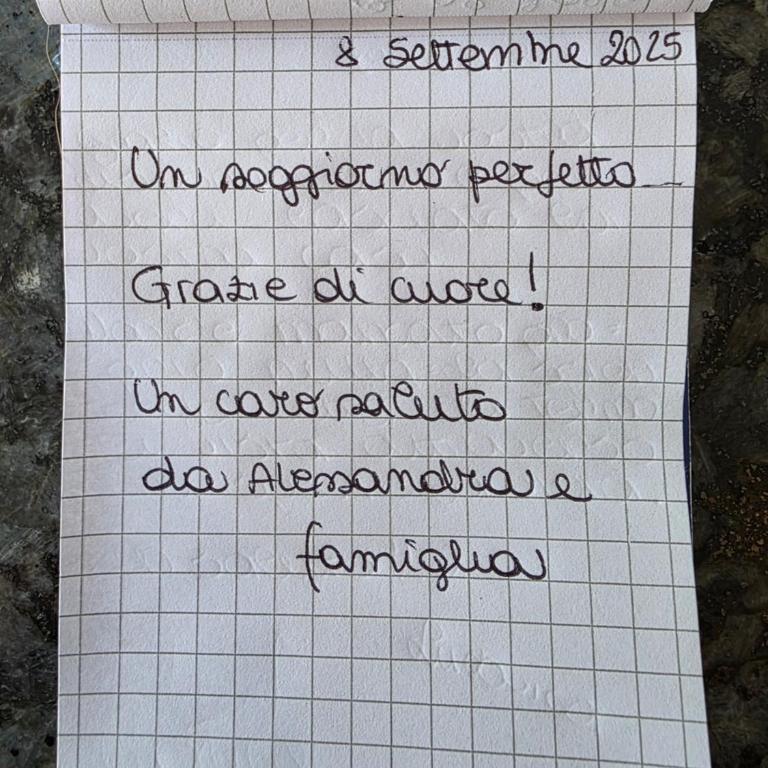 8 Settembre 2025
Un soggiorno perfetto...
Grazie di cuore!
Un caro saluto
da Alessandra e
famiglia